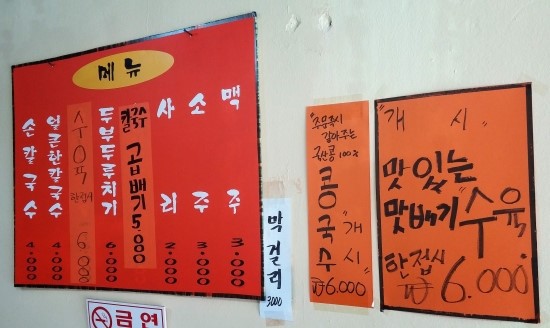 메뉴
손칼국수 4.000
얼큰한칼국수 4.000
수육 한접시 6.000
두부두루치기 6.000
칼국수 곱배기 5.000
사리 2.000
소주 3.000
맥주 3.000
막걸리 3000
금연
"주문즉시
갈아주는
국산콩 100%
콩국수 "개시"
₩6.000
"개시"
맛있는
맛배기 "수육"
한접시
₩6.000